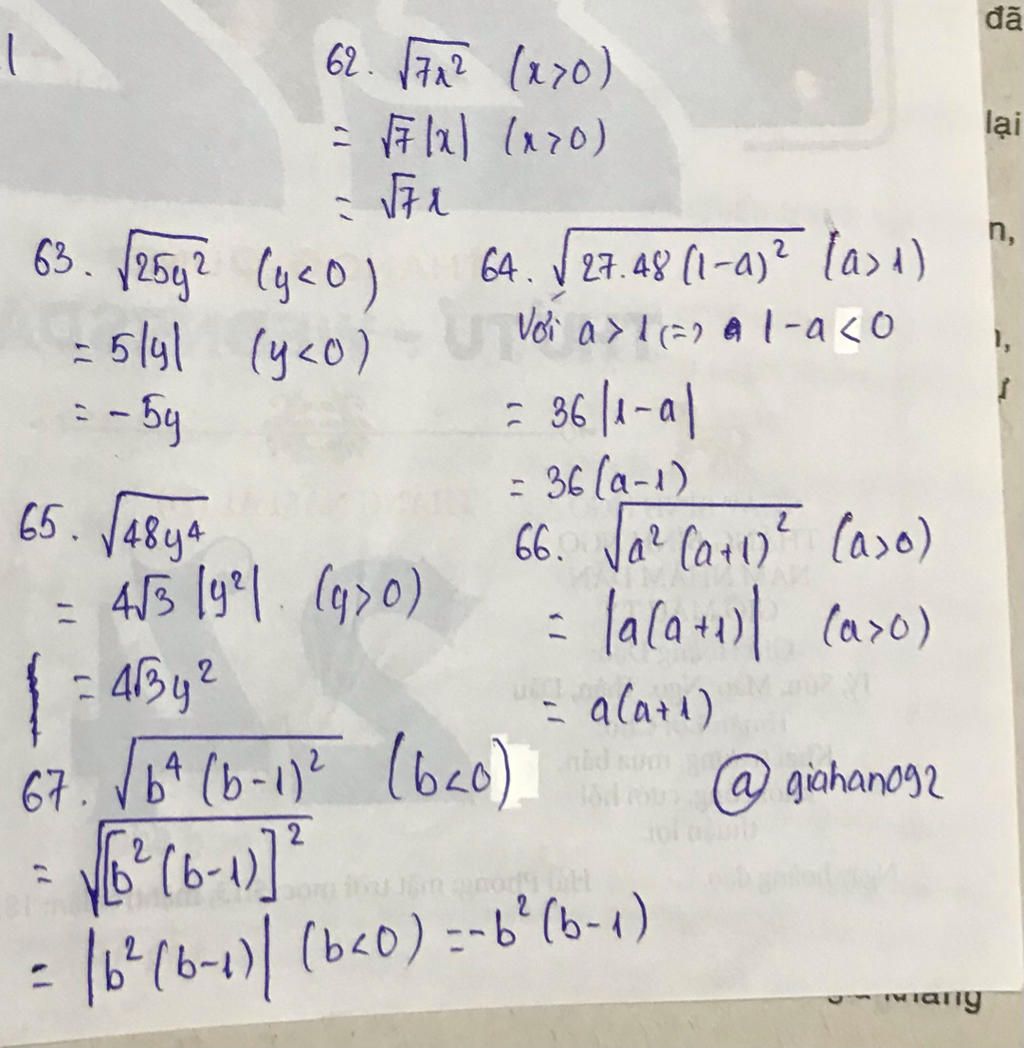 62. √7x² (x>0)
= √7|x| (x>0)
= √7x
63. √25y² (y<0)
= 5|y| (y<0)
= -5y
64. √27.48(1-a)² (a>1)
Với a>1 (=) 1-a<0
= 36|1-a|
= 36(a-1)
65. √48y⁴
= 4√3 |y²| (y>0)
= 4√3y²
66. √a²(a+1)² (a>0)
= |a(a+1)| (a>0)
= a(a+1)
67. √b⁴(b-1)² (b<0)
= √[b²(b-1)]²
= |b²(b-1)| (b<0) = -b²(b-1)
@ giahan092
đã
lại
n,